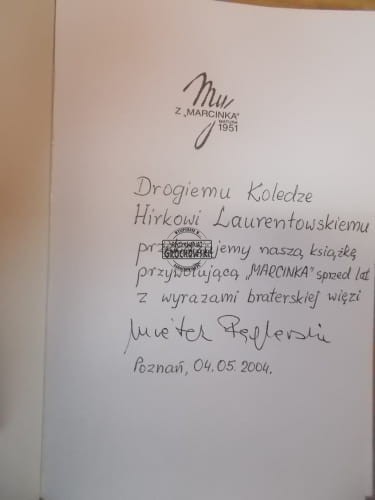 My
Z „MARCINKA”
MATURA
1951
Drogiemu Koledze
Hirkowi Laurentowskiemu
naszą książkę
przywołującą „MARCINKA” sprzed lat
z wyrazami braterskiej więzi
GROCHOWSKI
Poznań, 04.05.2004.